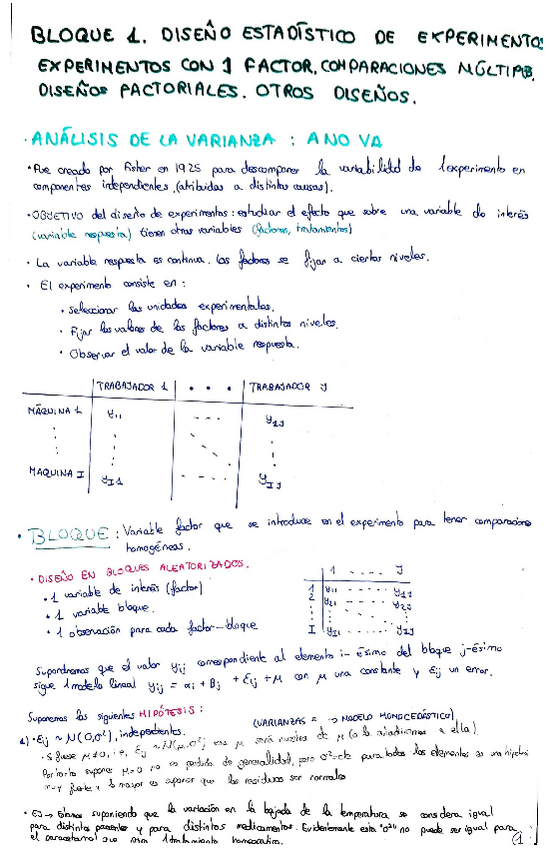 BLOQUE 1. DISEÑO ESTADÍSTICO DE EXPERIMENTOS
EXPERIMENTOS CON 1 FACTOR. COMPARACIONES MÚLTIPLES.
DISEÑOS FACTORIALES. OTROS DISEÑOS.
· ANÁLISIS DE LA VARIANZA : ANOVA
· Fue creado por Fisher en 1925 para descomponer la variabilidad de 1 experimento en
componentes independientes (atribuidas a distintas causas).
· OBJETIVO del diseño de experimentos: estudiar el efecto que sobre una variable de interés
(variable respuesta) tienen otras variables (factores, tratamientos)
· La variable respuesta es continua. Los factores se fijan a ciertos niveles.
· El experimento consiste en :
· Seleccionar las unidades experimentales.
· Fijar los valores de los factores a distintos niveles.
· Observar el valor de la variable respuesta.
TRABAJADOR 1 · · · TRABAJADOR J
MÁQUINA 1 y11 --- y1J
MAQUINA I yI1 ---- yIJ
· BLOQUE : Variable factor que se introduce en el experimento para tener comparaciones
homogéneas.
· DISEÑO EN BLOQUES ALEATORIZADOS.
· 1 variable de interés (factor)
· 1 variable bloque.
· 1 observación para cada factor-bloque
1 ---- J
1 y11 ---- y1J
2 y21 ---- y2J
I yI1 ---- yIJ
Supondremos que el valor yij correspondiente al elemento i-ésimo del bloque j-ésimo
sigue 1 modelo lineal yij = αi + βj + εij + μ con μ una constante y εij un error.
Suponemos las siguientes HIPÓTESIS :
(VARIANZAS = → MODELO HOMOCEDÁSTICO)
1) · εij ~ N(0,σ²), independientes.
· Si fuese μ≠0, i.e, εij ~ N(μ,σ²) μ (o la añadiríamos a ella).
Por tanto suponer μ=0 no es pérdida de generalidad, pero σ²=cte para todos los elementos es una hipótesis
muy fuerte y lo mejor es suponer que los residuos son normales
· EJ → Estamos suponiendo que la variación en la bajada de la temperatura se considera igual
para distintos pacientes y para distintos medicamentos. Evidentemente esta "σ²" no puede ser igual para
el paracetamol que para 1 tratamiento homeopático.
1